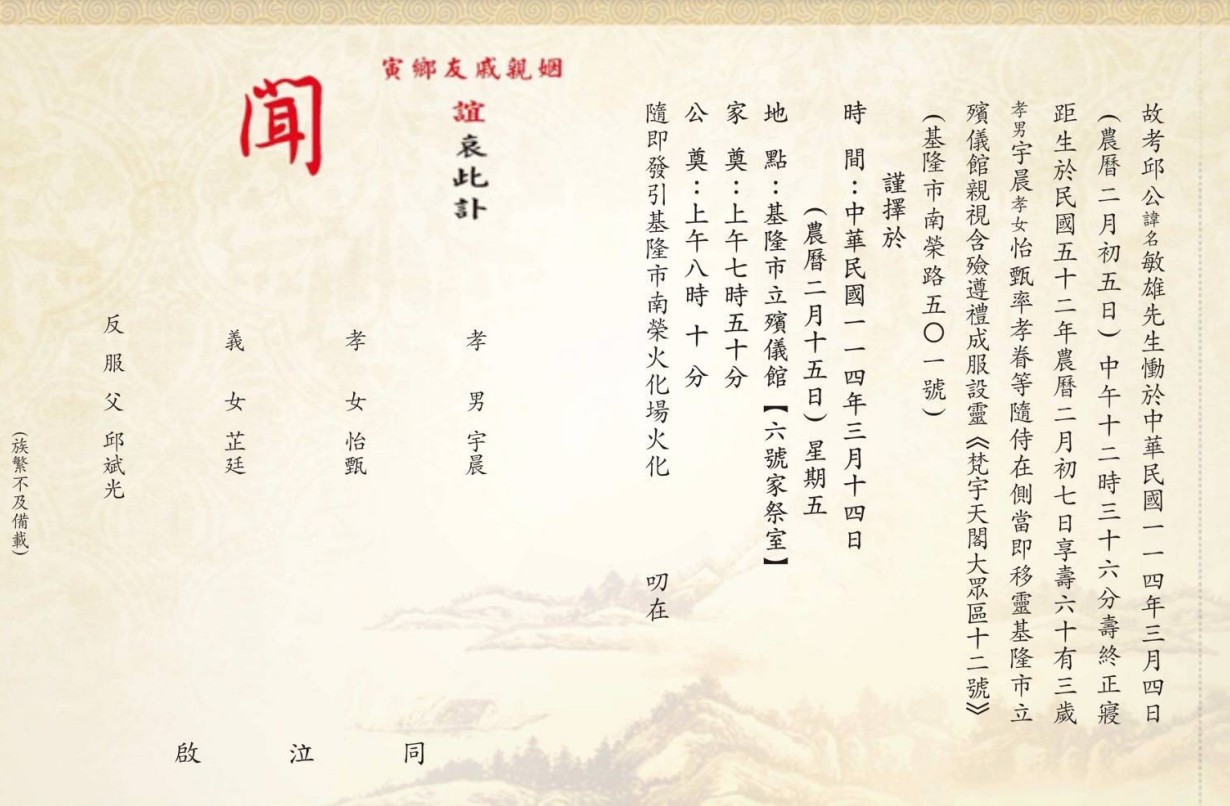 故考邱公諱名敏雄先生慟於中華民國一一四年三月四日
(農曆二月初五日)中午十二時三十六分壽終正寢
距生於民國五十二年農曆二月初七日享壽六十有三歲
孝男宇晨孝女怡甄率孝眷等隨侍在側當即移靈基隆市立
殯儀館親視含殮遵禮成服設靈《梵宇天閣大眾區十二號》
(基隆市南榮路五〇一號)
謹擇於
時間：中華民國一一四年三月十四日
(農曆二月十五日)星期五
地點：基隆市立殯儀館【六號家祭室】
家奠：上午七時五十分
公奠：上午八時十分
隨即發引基隆市南榮火化場火化 叨在
姻親戚友鄉寅
誼哀此訃
聞
孝男宇晨
孝女怡甄
義女芷廷
反服父邱斌光
同泣啟
(族繁不及備載)